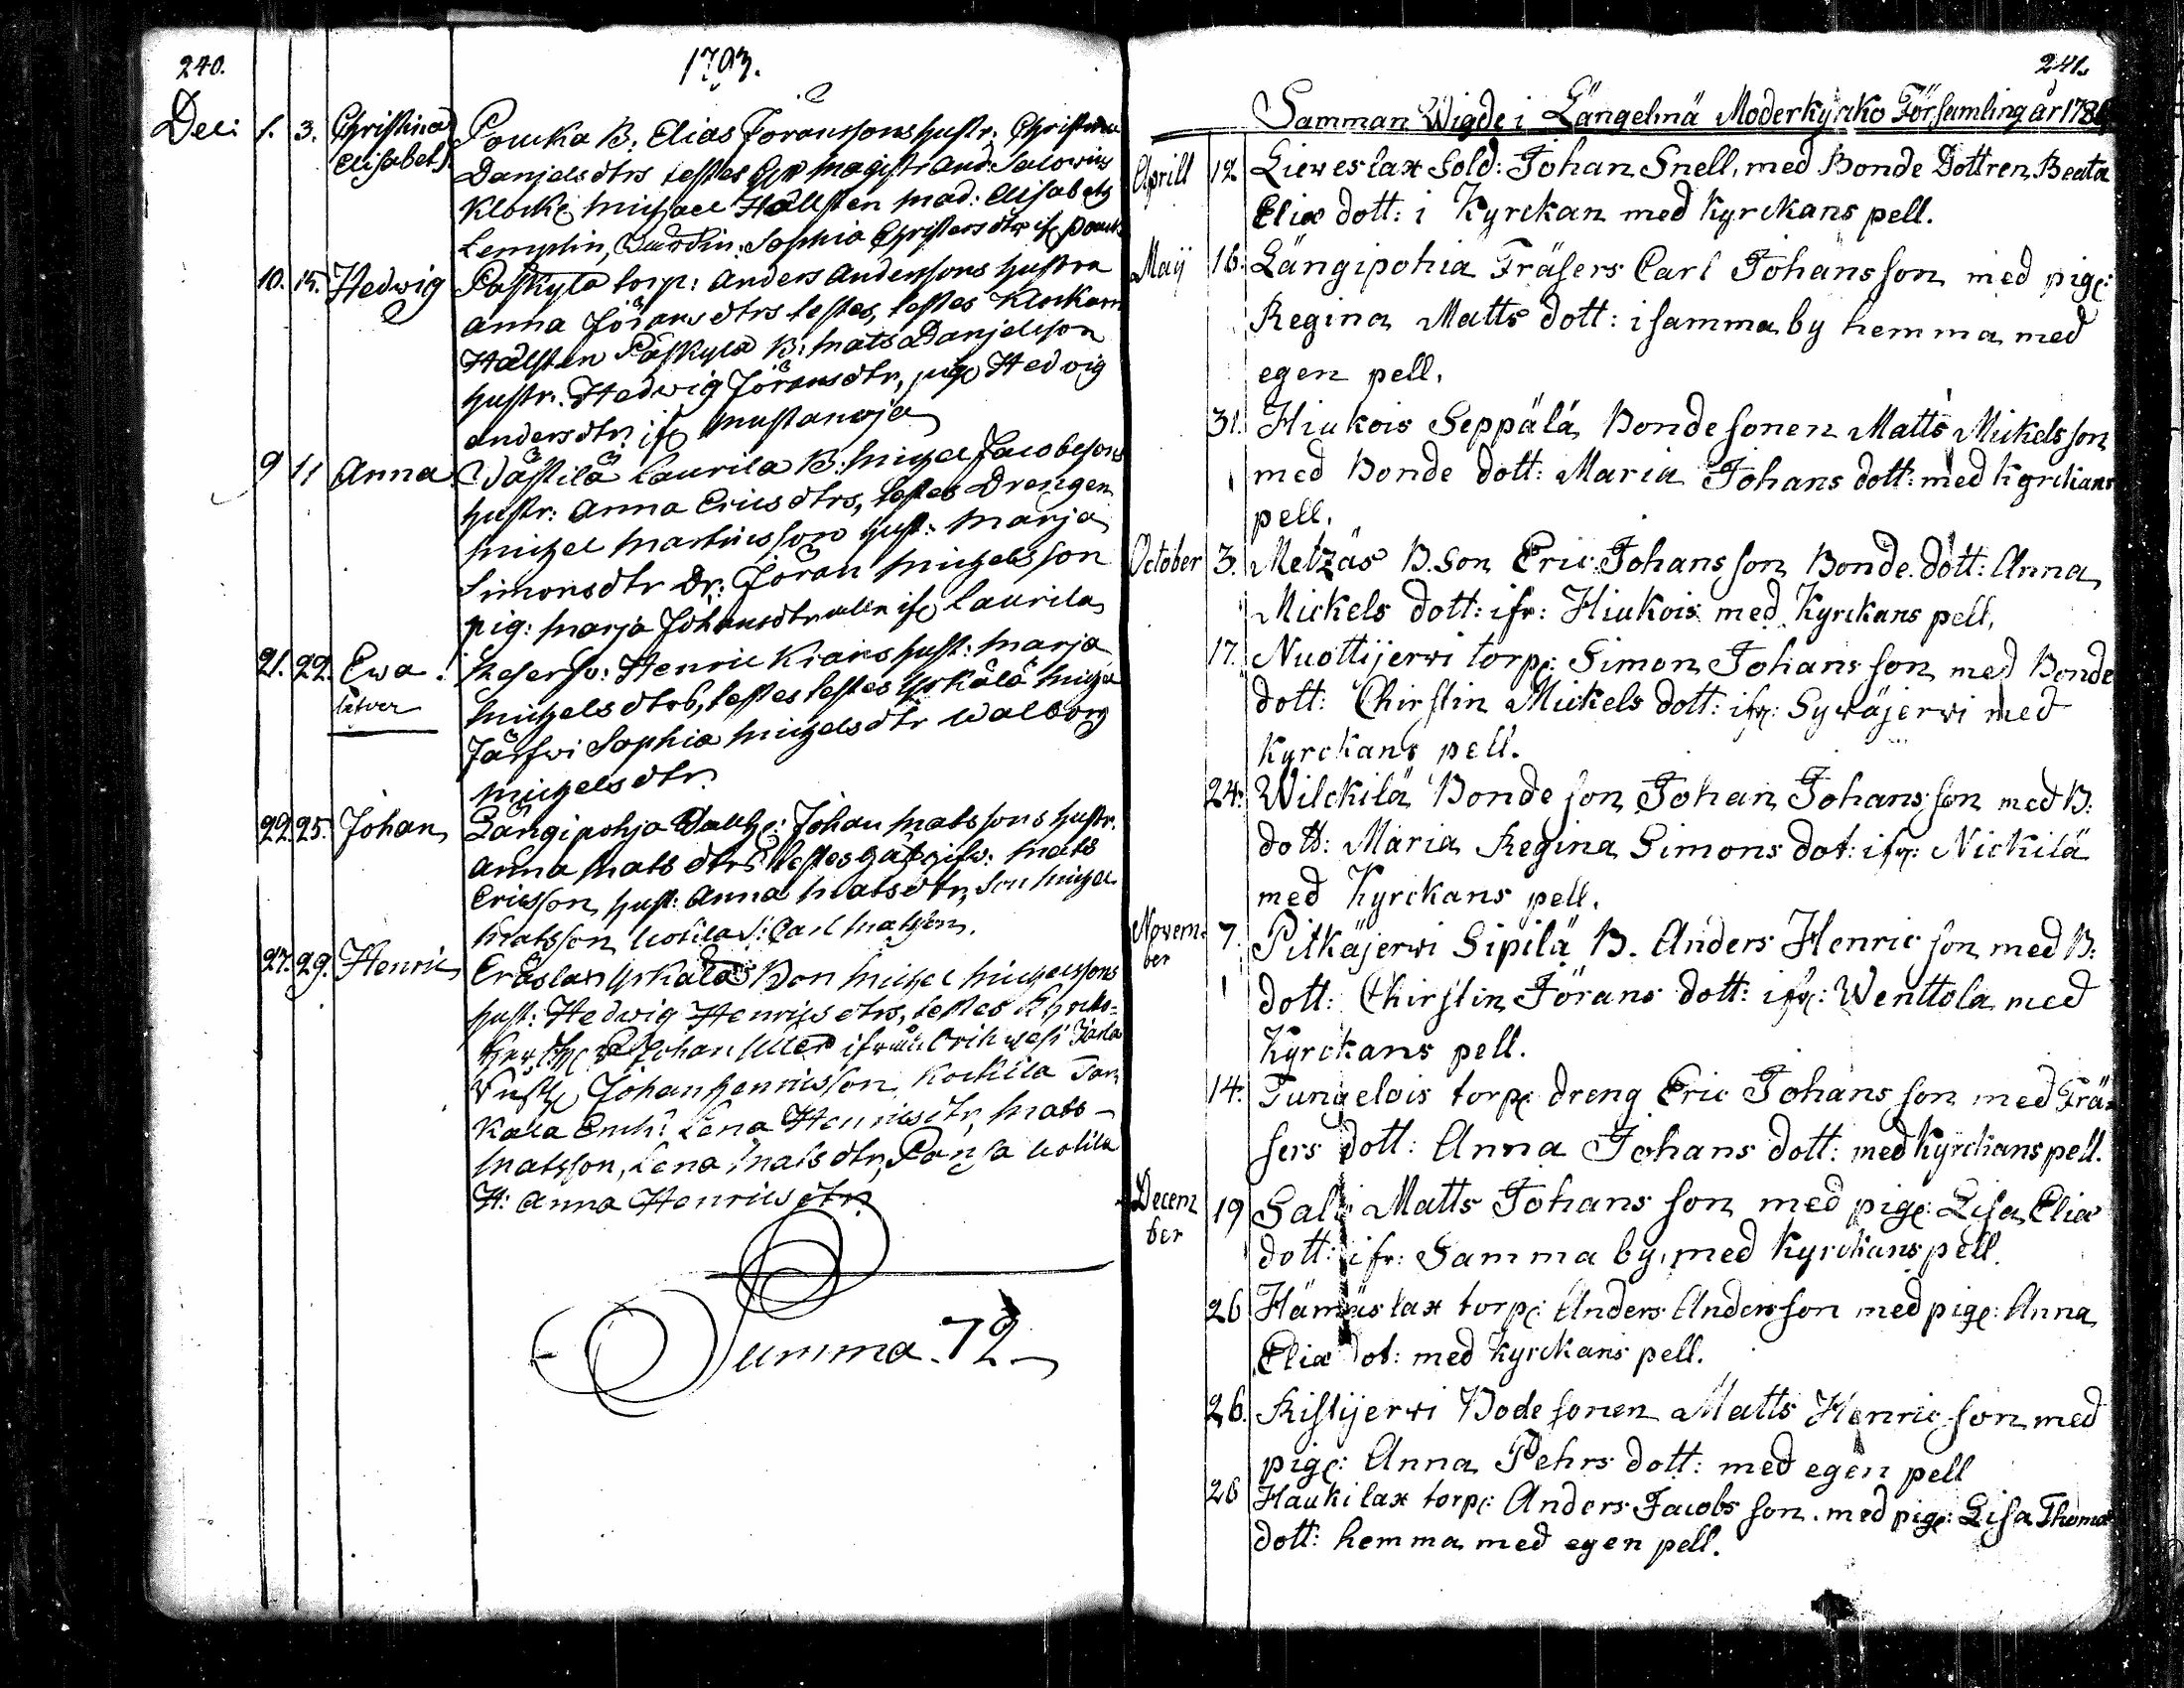 240.
1793.
Dec: 1. 3. Christina Pouka B: Elias Göranssons hustr: Christina
Elisabet Danjelsdtrs testes magistr And: Salovius
Klock: Michael Hällsten mad: Elisabeth
Lemplin, Sophia Christersdtr
10. 15. Hedwig Påskyla torp: anders anderssons hustru
anna Göransdtrs testes, testes Klockarn
Hälsten Påskyla B: mats Danjelsson
hustr: Hedwig Göransdtr, pig: Hedvig
andersdtr: ifr mustanoja
9 11 Anna Wästilä Laurila B: michel Jacobssons
hustr: Anna Ericsdtrs, testes Drengen
michel Martinsson hust: marja
Simonsdtr Dr: Göran michelsson
pig: marja Johansdtr ifr Laurila
21. 22. Ewa Henric hust: marja
michelsdtrs, testes testes Yskälä michel
Järfwi Sophia michelsdtr Walborg
michelsdtr
22. 25. Johan Längipohja Johan matssons hustr:
anna matsdtrs testes mats
Ericsson hust: anna matsdtr, Son michel
matsson Uotila Carl matsson.
27. 29. Henric Eräslax Yskälä Bon michel michelssons
hust: Hedwig Henricsdtrs, testes
Johan ifrån Orihwesi
Johan Henricsson, Kockila
Lena Henricsdtr, mats
matsson, Lena matsdtr, Uotila
H: anna Henricsdtr
Summa. 72
241.
Samman Wigde i Längelmä Moderkyrko Församling år 178
Aprill 12 Lieweslax Sold: Johan Snell, med Bonde Dottren Beata
Eliæ dott: i Kyrckan med kyrckans pell.
Maÿ 16. Längipohia Fräsers Carl Johansson med pig:
Regina Matts dott: i samma by hemma med
egen pell.
31. Hiukois Seppälä Bonde sonen Matts Mickelsson
med Bonde dott: Maria Johans dott: med kyrckans
pell.
October 3. Metzäs B. Son Eric Johansson Bonde dott: Anna
Mickels dott: ifr: Hiukois med Kyrckans pell.
17. Nuottijerwi torp: Simon Johansson med Bonde
dott: Chirstin Mickels dott: ifr: Sywäjerwi med
Kyrckans pell.
24. Wilckilä Bonde son Johan Johansson med B:
dott: Maria Regina Simons dot: ifr: Nickilä
med Kyrckans pell.
Novem 7. Pitkäjerwi Sipilä B. Anders Henricson med B:
ber dott: Chirstin Jörans dott: ifr: Wenttola med
Kyrckans pell.
14. Tungelois torp: dreng Eric Johansson med Frä-
sers dott: Anna Johans dott: med kyrckans pell.
Decem 19 Sali Matts Johansson med pig: Lisa Eliæ
ber dott: ifr: Samma by, med Kyrckans pell.
26 Hämäslax torp: Anders Andersson med pig: Anna
Eliæ dot: med kyrckans pell.
26. Ristijerwi Bode sonen Matts Henricson med
pig: Anna Pehrs dott: med egen pell
26 Haukilax torp: Anders Jacobsson med pig: Lisa Thomæ
dott: hemma med egen pell.